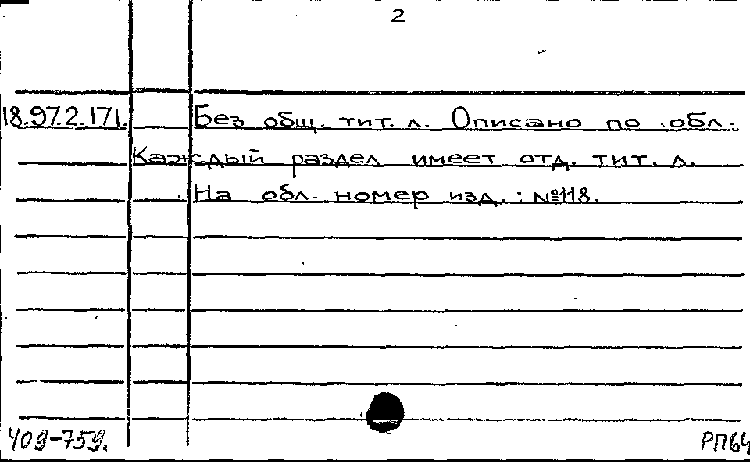 2
18.97.2.171. Без общ. тит. л. Описано по обл.
Каждый раздел имеет отд. тит. л.
На обл. номер изд.: №118.
409-759. РП64